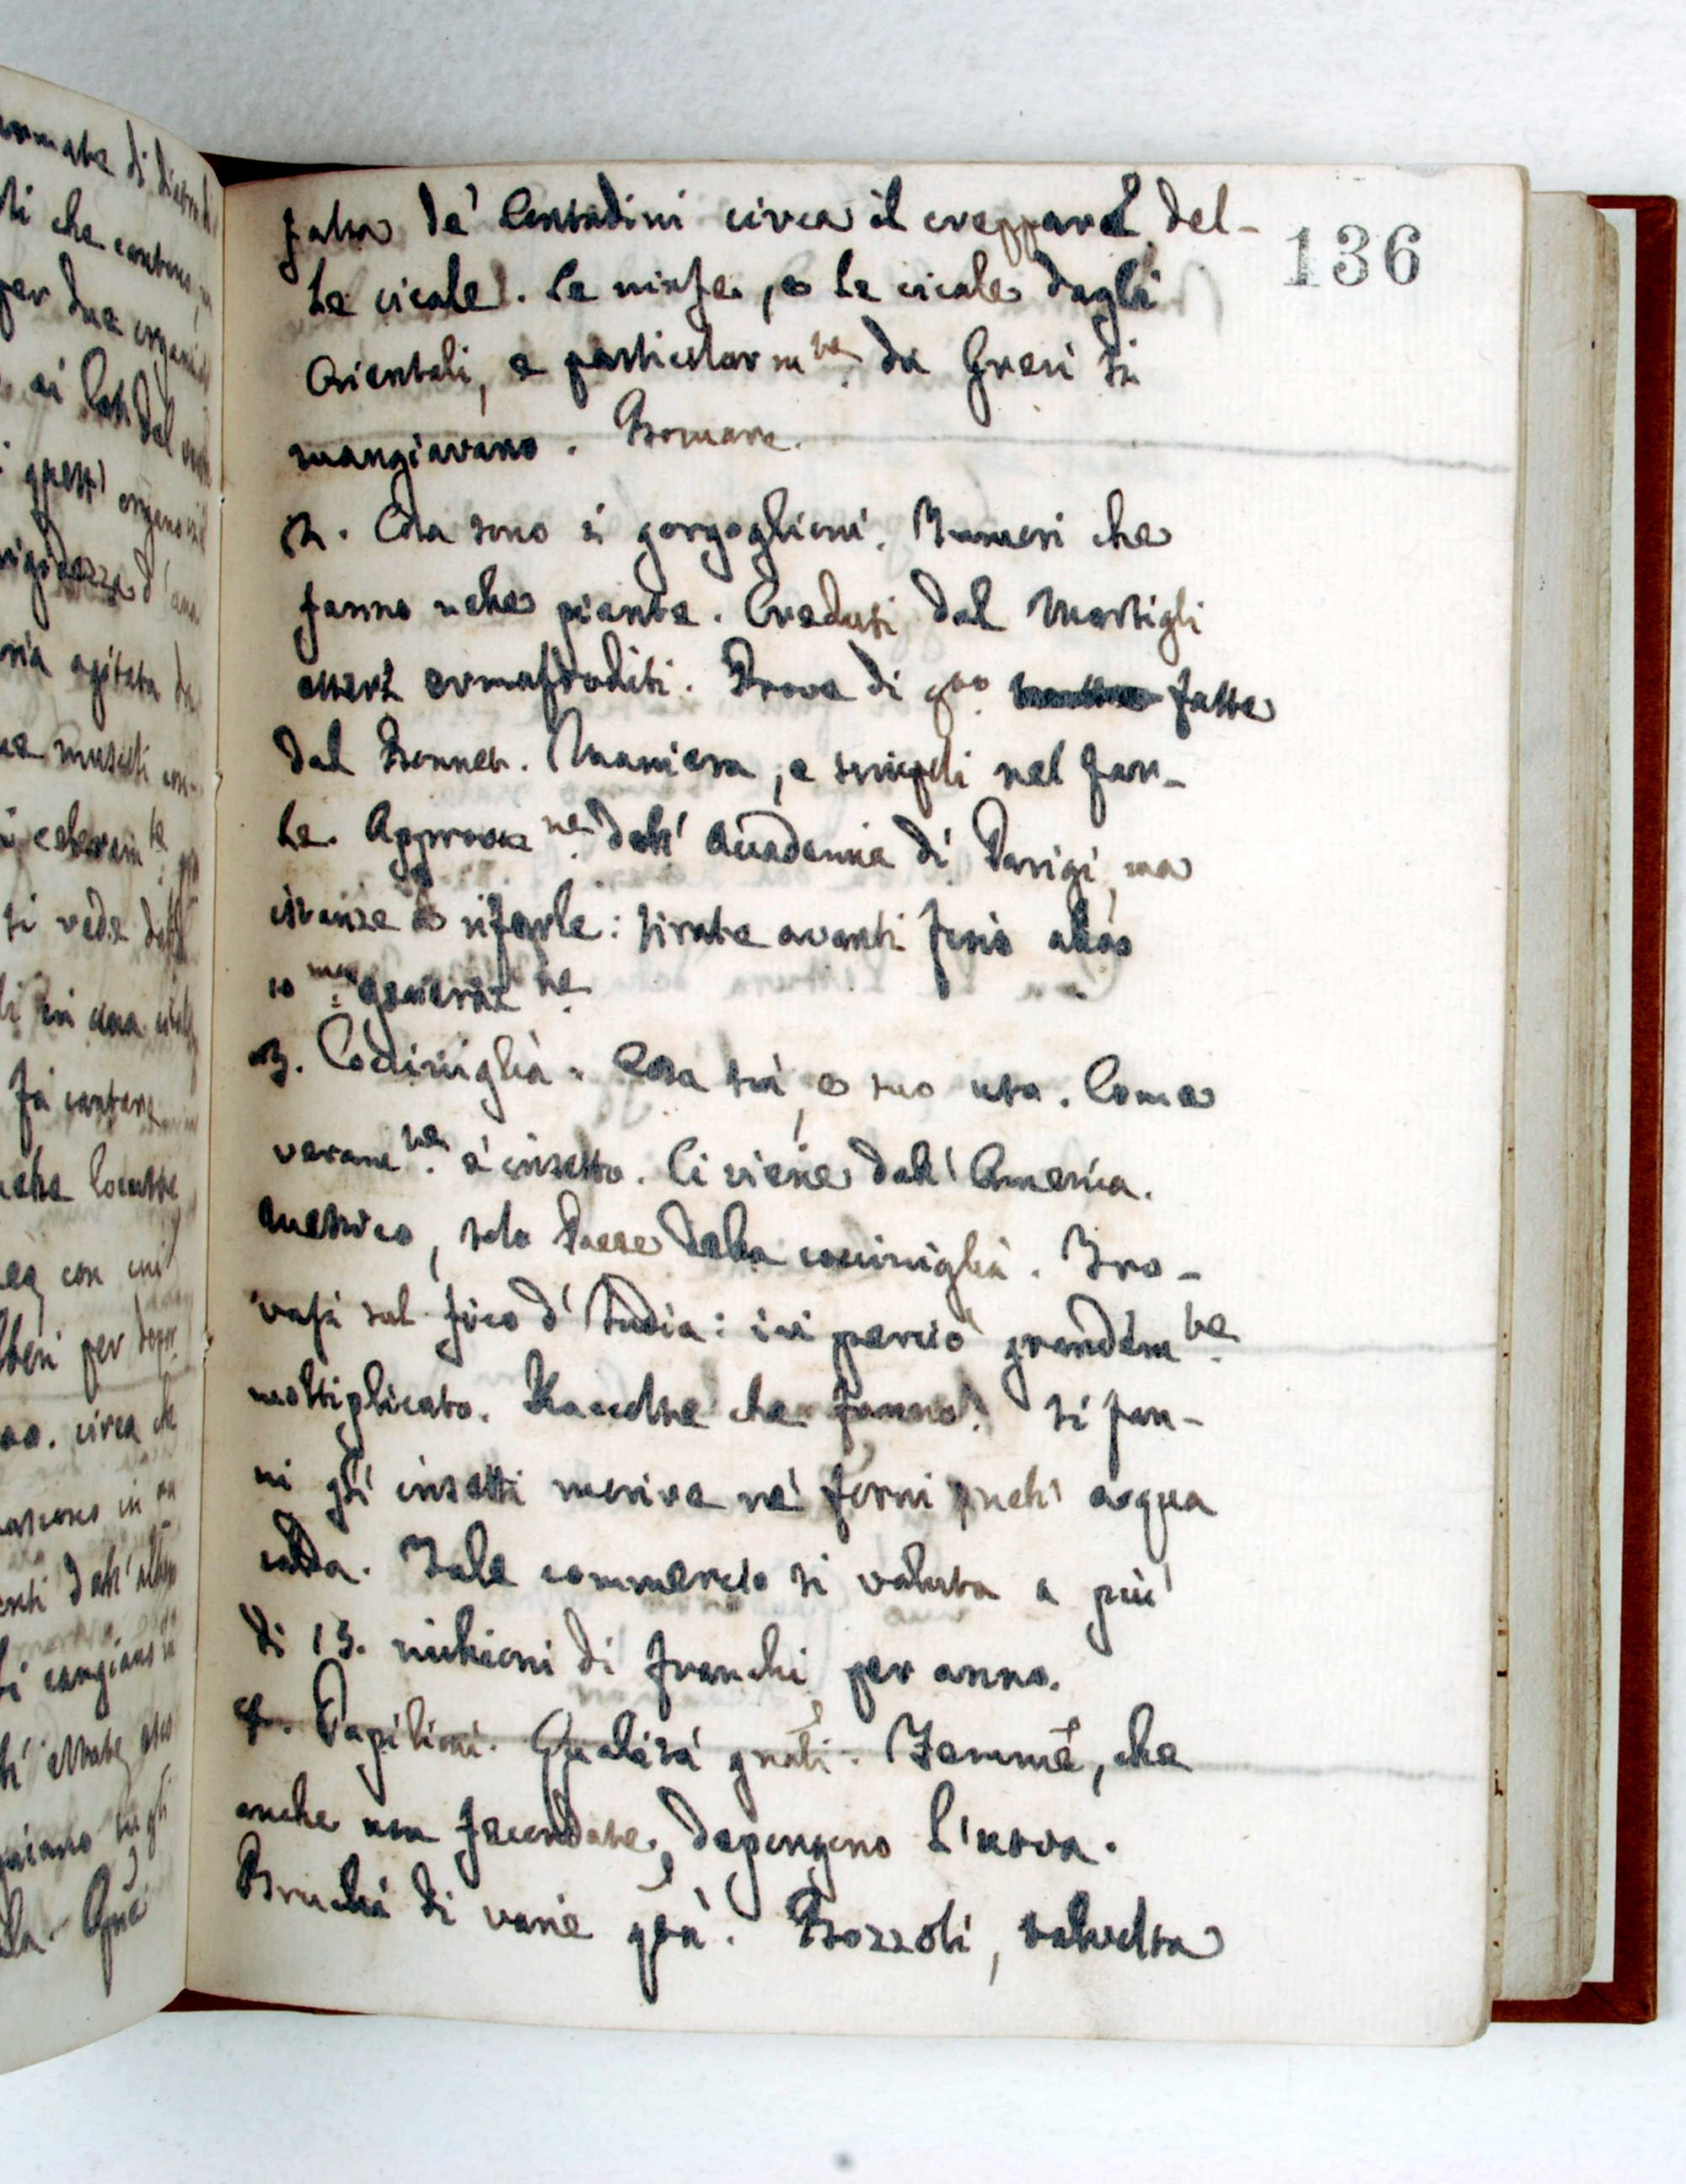 136
falsa de' Contadini circa il creppare del-
le cicale. Le ninfe, e le cicale dagli
Orientali, e particolarm.te da Greci si
mangiavano. Bomare.
2. Cosa sono i gorgoglioni. Tumori che
fanno nelle piante. Creduti dal
essere ermafroditi. Prove di qto fatte
dal Bonnet. Maniera, e scrupoli nel far-
le. Approvaz.ne dell' Accademia di Parigi, ma
istanze a rifarle: tirate avanti fino alla
10.ma generaz.ne
3. Cocciniglia. Cosa sia, e suo uso. Come
veram.te è insetto. Ci viene dall' America.
Messico, solo Paese della cocciniglia. Tro-
vasi sul fico d' India: ivi perciò grandem.te
moltiplicato. Raccolte che fanno. Si fan-
ni gli insetti morire ne' forni, nell' acqua
calda. Tale commercio si valuta a più
di 13. millioni di franchi per anno.
4. Papilioni. Qualità gnali. Femme, che
anche non fecondate, depongono l' uova.
Bruchi di varie qtà. Bozzoli, talvolta